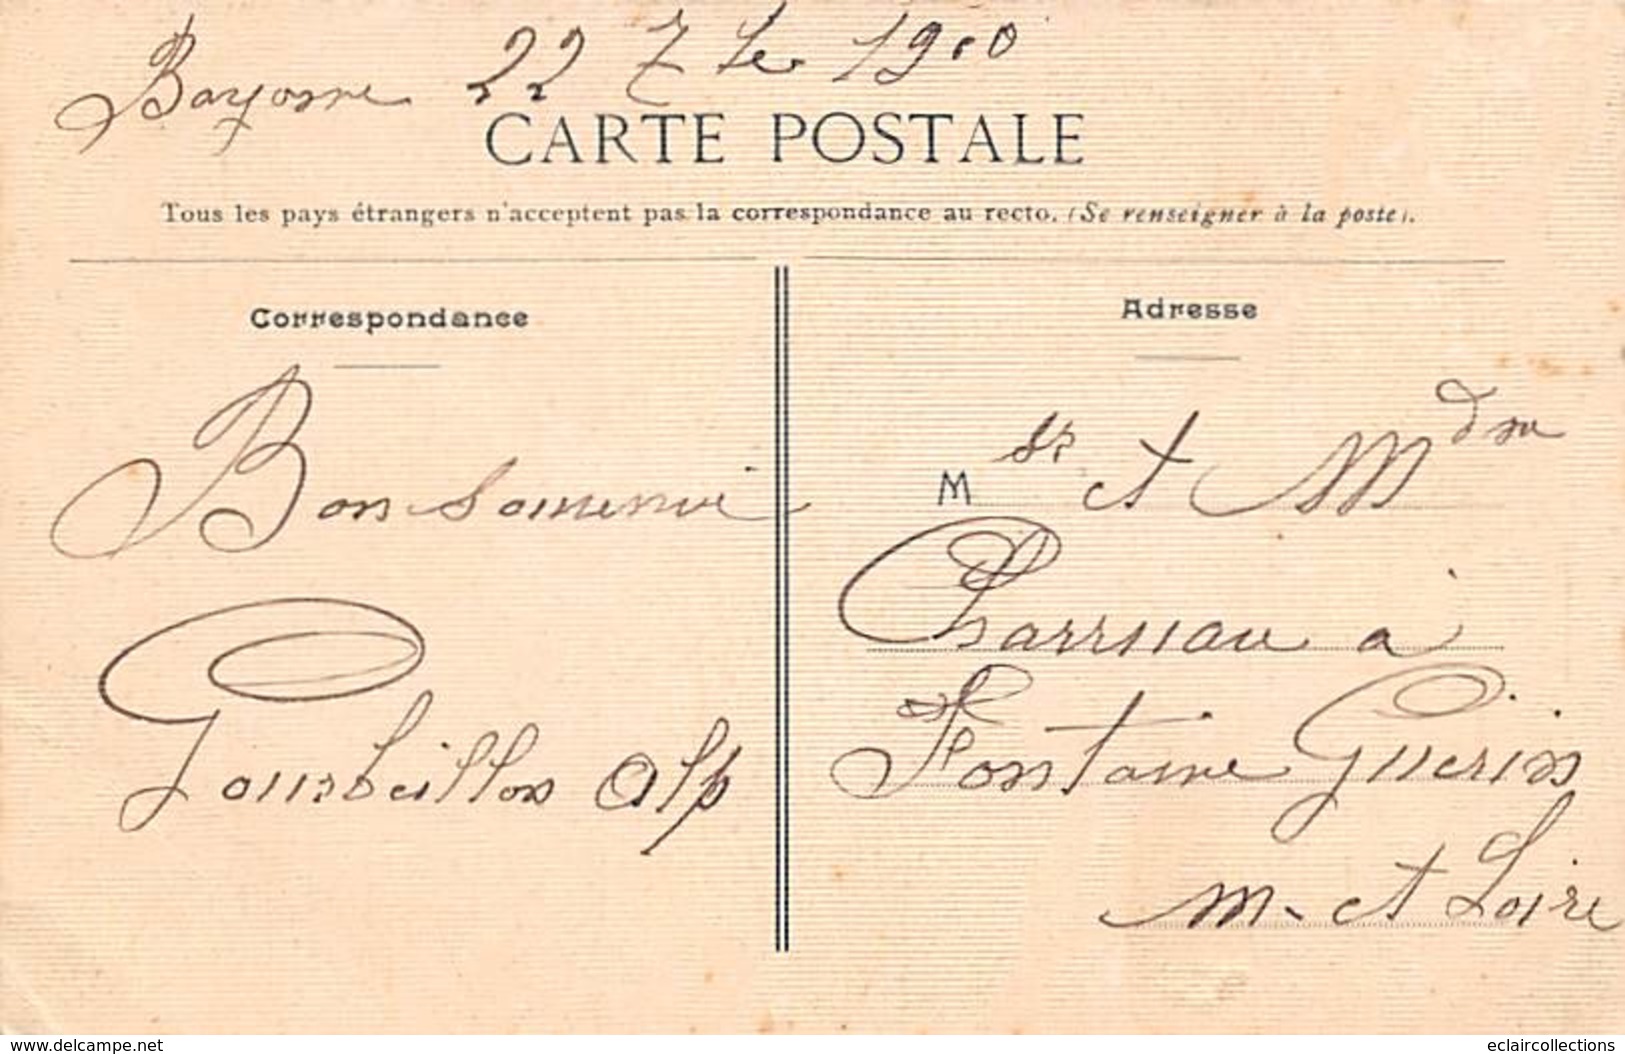 Bayonne 22 7bre 1910
CARTE POSTALE
Tous les pays étrangers n'acceptent pas la correspondance au recto. (Se renseigner à la poste).
Correspondance
Bon souvenir
Gourbeillon Alp
Adresse
M sr et Mdm
Charruau à
Fontaine Guérin
M. et Loire
www.delcampe.net
eclaircollections